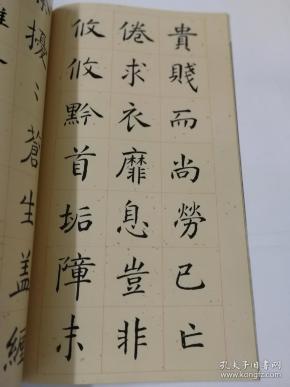 貴賤而尚勞已亡
倦求衣靡息豈非
攸攸黔首垢障未
擾〻蒼生蓋纏
孔夫子旧书网